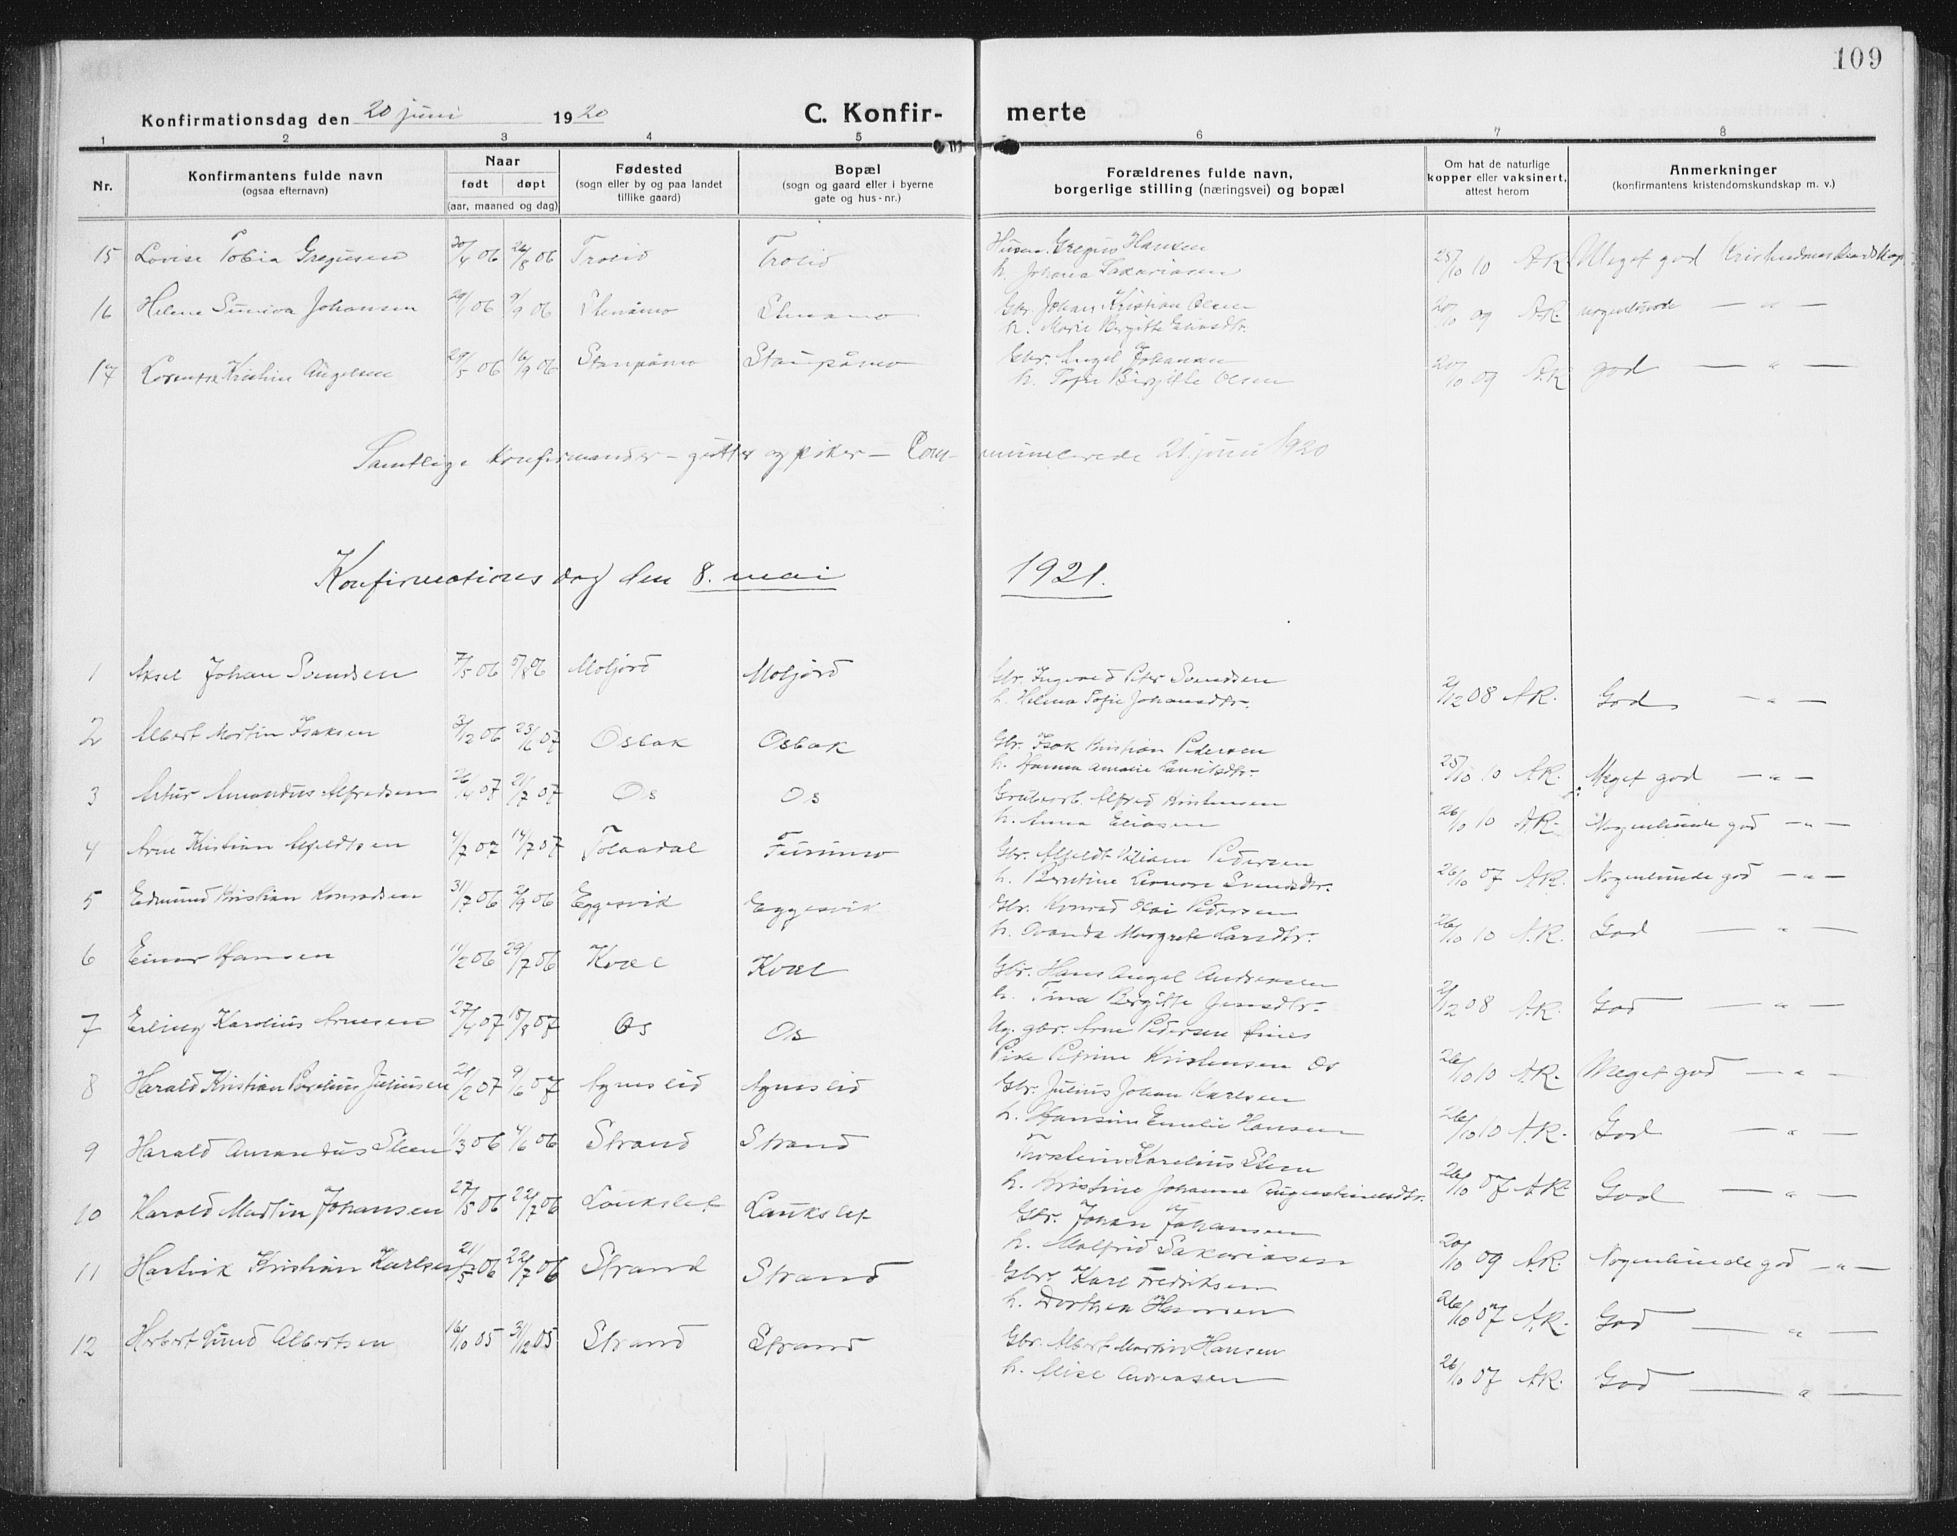 109
Konfirmationsdag den 20 juni 1920 C. Konfir- merte
1 2 3 4 5 6 7 8
Nr.
Konfirmantens fulde navn
(ogsaa efternavn)
Naar
født døpt
(aar, maaned og dag)
Fødested
(sogn eller by og paa landet
tillike gaard)
Bopæl
(sogn og gaard eller i byerne
gate og hus-nr.)
Forældrenes fulde navn,
borgerlige stilling (næringsvei) og bopæl
Om hat de naturlige
kopper eller vaksinert,
attest herom
Anmerkninger
(konfirmantens kristendomskundskap m. v.)
15 Lovise Tobia Gregusen 20/4 06 26/8 06 Trolid Trolid Gregus Hansen 25/10 10 A.R. Meget god Kristendomskundskap
h. Johana Sakariasen
16 Helene Suniva Johansen 06 9/9 06 Stenåmo Stenamo Gbr. Johan Kristian Olsen 20/10 09 A.R. nogenlunde — " —
h. Marie Bergitte
17 Lorentse Kristine Angelsen 29/5 06 16/9 06 Staupåmo Staupåmo Gbr. Angel Johansen 20/10 09 A.R. god — " —
h. Birgitte Olsen
Samtlige konfirmander - gutter og piker - Com- municerede 21. juni 1920
Konfirmationsdag den 8. mai 1921.
1 Aksel Johan Svendsen 7/5 06 5/8 06 Moljord Moljord Gbr. Ingvard Peter Svendsen
h. Helma Sofie Johansdtr. 2/12 08 A.R. God — " —
2 Albert Martin Isaksen 3/12 06 23/6 07 Osbak Osbak Gbr. Isak Kristian Pedersen
h. Hanna Amalie 25/10 10 A.R. Meget god — " —
3 Artur Amandus Alfredsen 26/4 07 21/7 07 Os Os Grubearb. Alfred Kristensen
h. Anna Eliasen 26/10 10 A.R. Nogenlunde god — " —
4 Arne Kristian 4/7 07 14/7 07 Tolaadal Furumo Gbr. Pedersen
h. Berntine Leonore Svendsdtr. 26/10 07 A.R. Nogenlunde god — " —
5 Edmund Kristian Konradsen 31/7 06 2/9 06 Eggesvik Eggesvik Gbr. Konrad Pedersen
h. Ovanda Margrete Larsdtr. 26/10 10 A.R. God — " —
6 Einar Hansen 11/2 06 29/7 06 Kvæl Kvæl Gbr. Hans Angel Andersen
h. Tina Bergitte Jensdtr. 2/12 08 A.R. God — " —
7 Erling Karolius Arnesen 27/4 07 18/8 07 Os Os Ug. gbr. Arne Pedersen Fines
Pike Petrine Kristensen Os 26/10 10 A.R. Meget god — " —
8 Harald Kristian Juliusen 21/2 07 9/6 07 Agneseid Agneseid Gbr. Julius Johan Karlsen
h. Hansine Emelie Hansen 26/10 10 A.R. God — " —
9 Harald Amandus Steen 1/3 06 4/6 06 Strand Strand Torstein Karelius Steen
h. Kristine Johanne Augustinusdtr. 26/10 07 A.R. God — " —
10 Harald Martin Johansen 27/5 06 22/7 06 Laukslet Laukslet Gbr. Johan Johansen
h. Malfrid Sakariasen 20/10 09 A.R. Nogenlunde god — " —
11 Hartvik Kristian Karlsen 21/5 06 22/7 06 Strand Strand Gbr. Karl Fredriksen
h. Dorthea Hansen 26/10 07 A.R. God — " —
12 Herbert Lund Albertsen 16/10 05 3/12 05 Strand Strand Gbr. Albert Martin Hansen
h. Alise Andreasen 26/10 07 A.R. God — " —